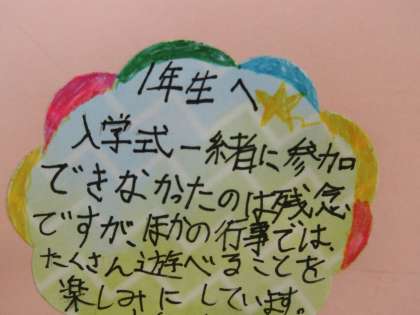 1年生へ
入学式一緒に参加
できなかったのは残念
ですが、ほかの行事では、
たくさん遊べることを
楽しみにしています。